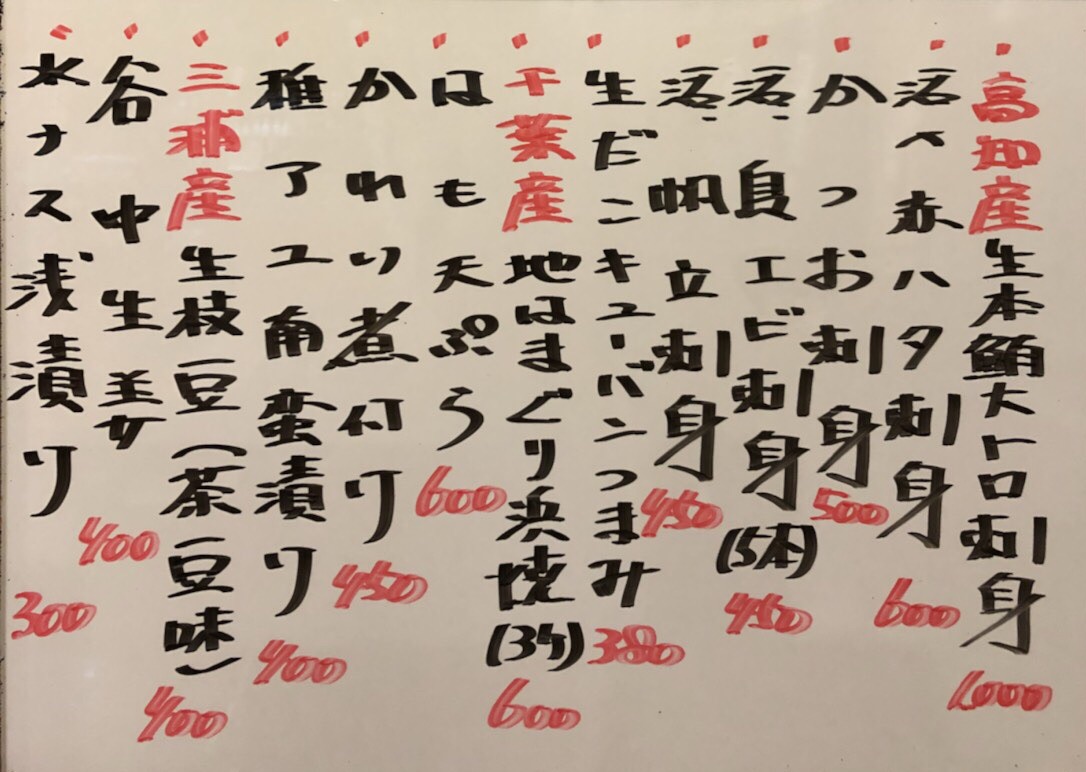 高知産生本鮪大トロ刺身 1000
活〆赤ハタ刺身 600
かつお刺身 500
活 エビ刺身(5本) 450
活帆立刺身 450
生だこキューバンつまみ 380
千葉産地はまぐり浜焼(3ケ) 600
はも天ぷら 600
かれい煮付け 450
稚アユ南蛮漬け 400
三浦産生枝豆(茶豆味) 400
谷中生姜 400
水ナス浅漬け 300